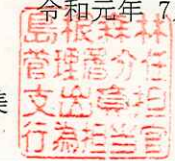 令和元年 7
島根森林
管理署分任
支出負担
行為担当官